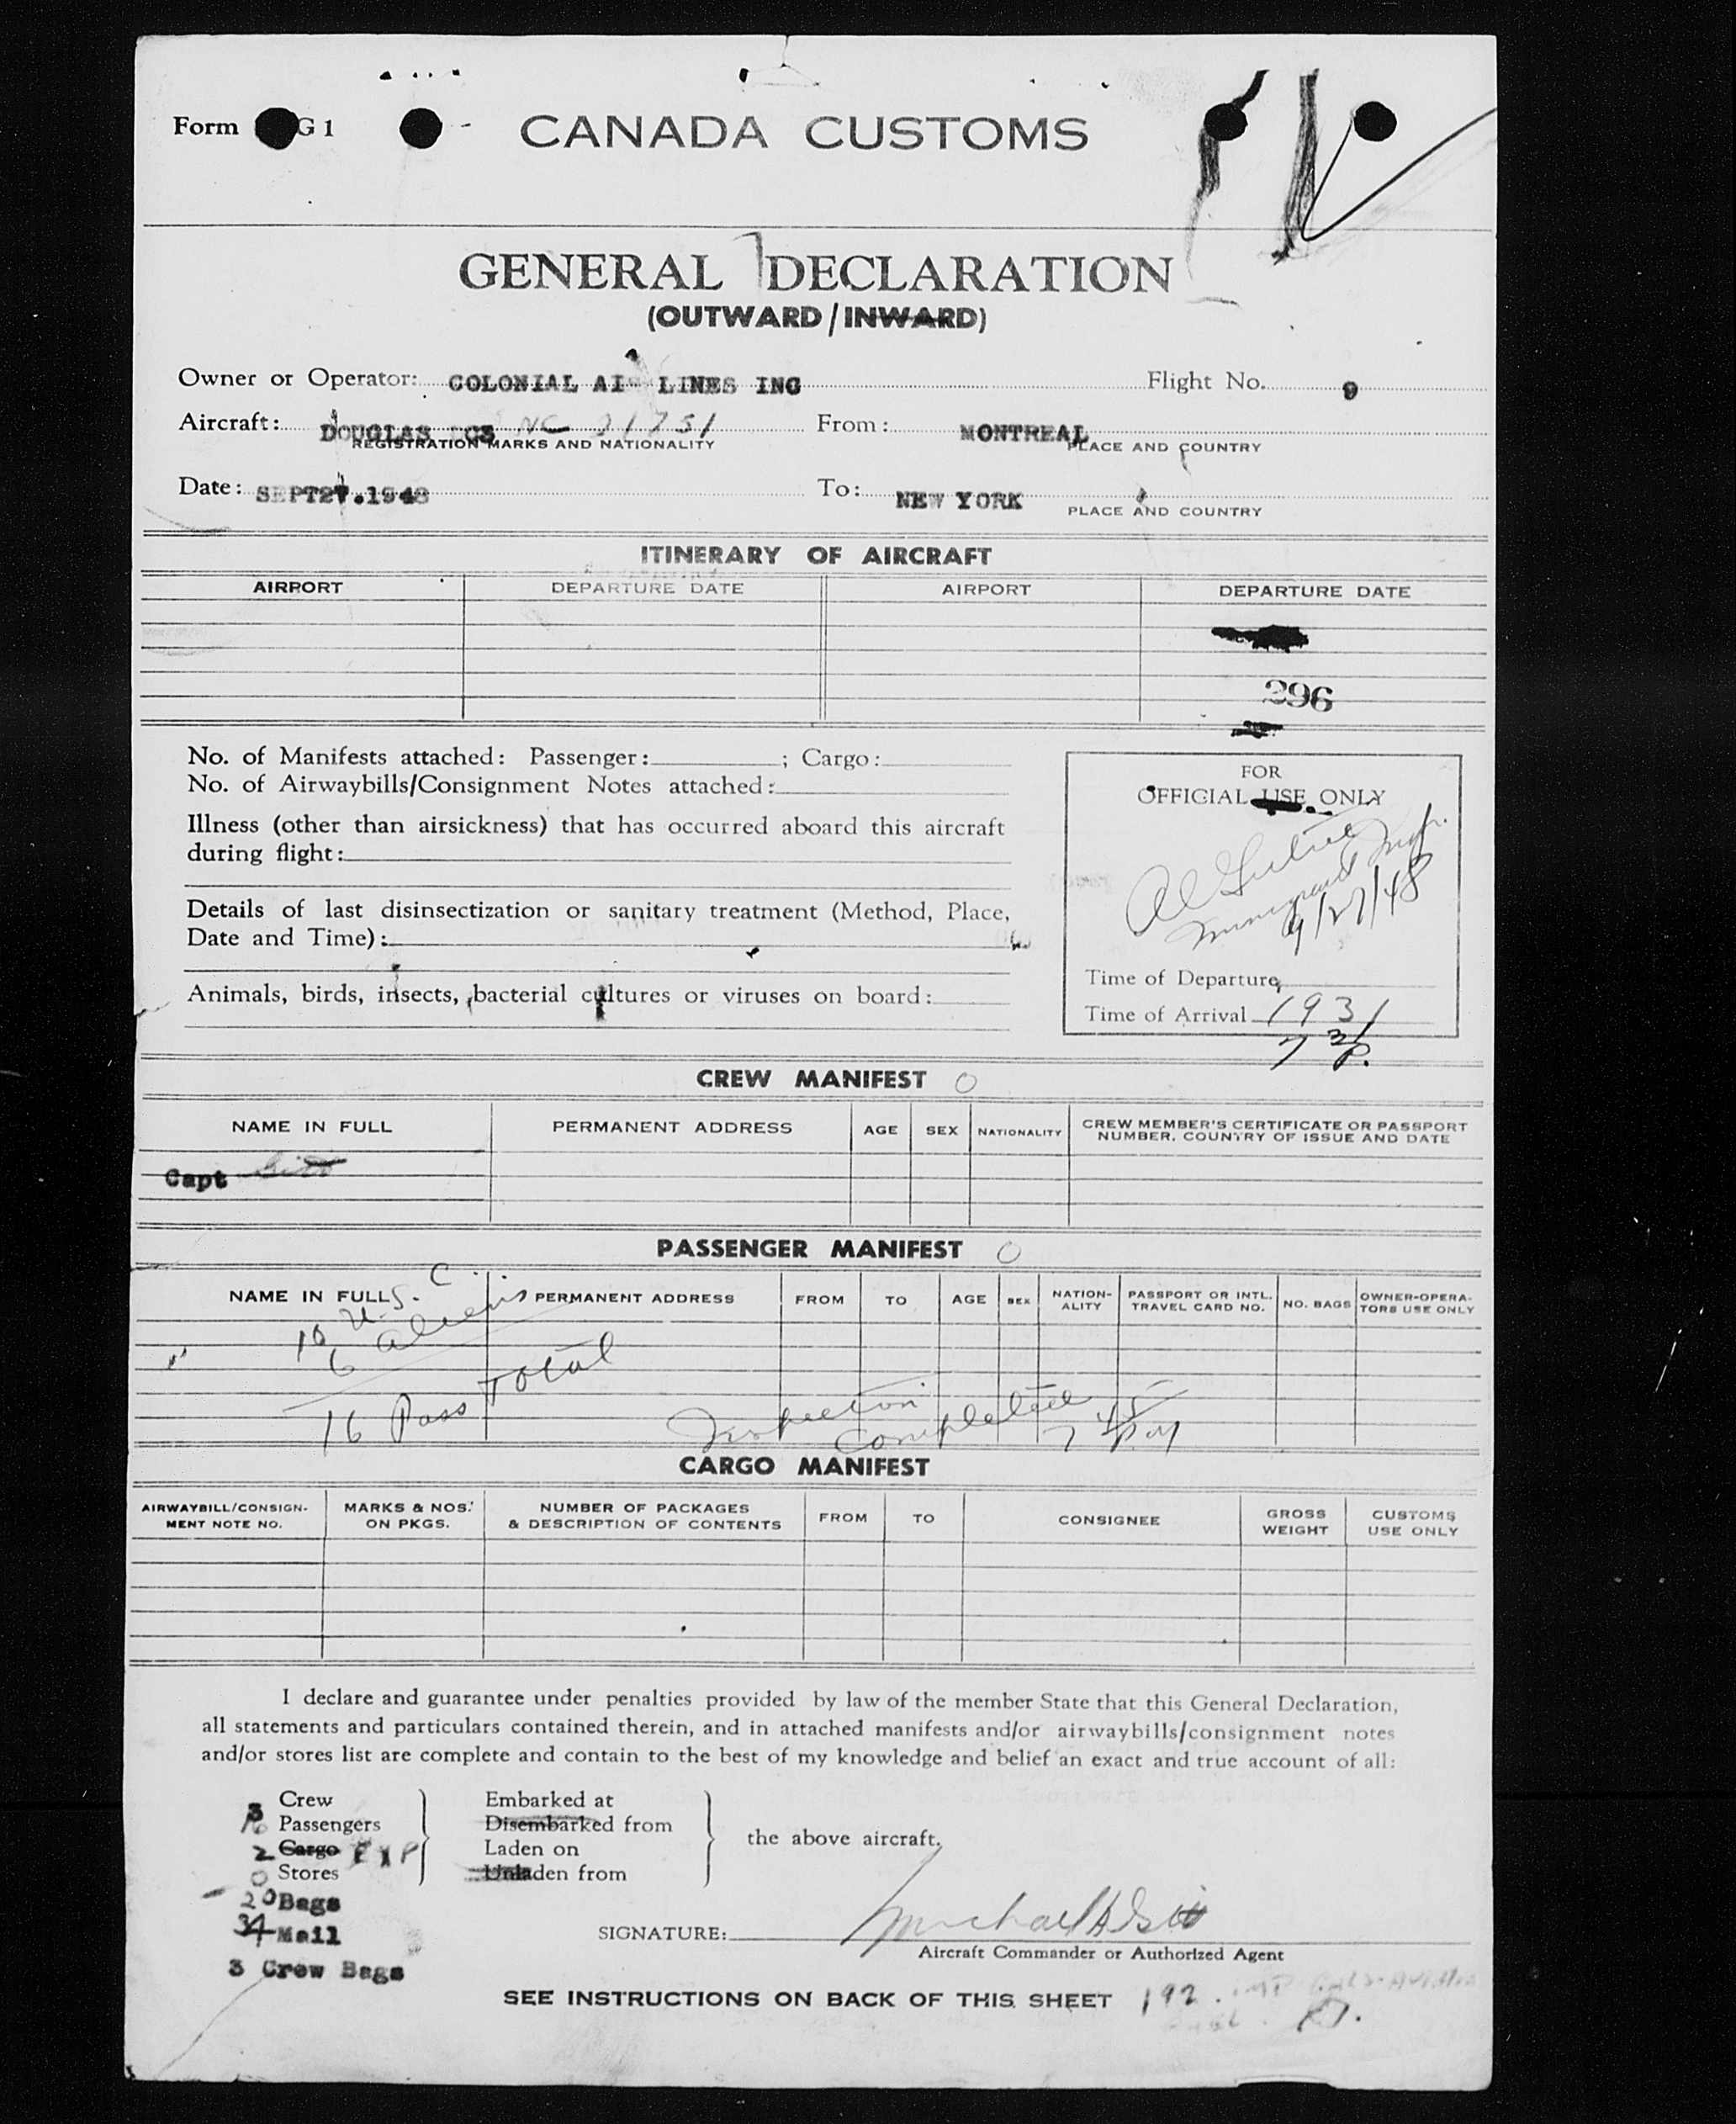 Form G 1
CANADA CUSTOMS
GENERAL DECLARATION
(OUTWARD/INWARD)
Owner or Operator: COLONIAL AI LINES INC Flight No. 9
Aircraft: DOUGLAS DC3 NC 21751 From: MONTREAL
REGISTRATION MARKS AND NATIONALITY PLACE AND COUNTRY
Date: SEPT27.1948 To: NEW YORK
PLACE AND COUNTRY
ITINERARY OF AIRCRAFT
AIRPORT DEPARTURE DATE AIRPORT DEPARTURE DATE
296
No. of Manifests attached: Passenger: ; Cargo:
No. of Airwaybills/Consignment Notes attached:
Illness (other than airsickness) that has occurred aboard this aircraft
during flight:
Details of last disinsectization or sanitary treatment (Method, Place,
Date and Time):
Animals, birds, insects, bacterial cultures or viruses on board:
FOR
OFFICIAL USE ONLY
Immigrant Insp.
9/27/48
Time of Departure
Time of Arrival 1931
7 31 P.
CREW MANIFEST O
NAME IN FULL PERMANENT ADDRESS AGE SEX NATIONALITY CREW MEMBER'S CERTIFICATE OR PASSPORT NUMBER, COUNTRY OF ISSUE AND DATE
Capt
PASSENGER MANIFEST O
NAME IN FULL PERMANENT ADDRESS FROM TO AGE SEX NATION-ALITY PASSPORT OR INTL. TRAVEL CARD NO. NO. BAGS OWNER-OPERA-TORS USE ONLY
10 U.S.C.
6 aliens
16 Pass Total
Inspection completed 7 45 P.M
CARGO MANIFEST
AIRWAYBILL/CONSIGN-MENT NOTE NO. MARKS & NOS. ON PKGS. NUMBER OF PACKAGES & DESCRIPTION OF CONTENTS FROM TO CONSIGNEE GROSS WEIGHT CUSTOMS USE ONLY
I declare and guarantee under penalties provided by law of the member State that this General Declaration,
all statements and particulars contained therein, and in attached manifests and/or airwaybills/consignment notes
and/or stores list are complete and contain to the best of my knowledge and belief an exact and true account of all:
3 Crew Embarked at
16 Passengers Disembarked from
the above aircraft.
2 Cargo EXP Laden on
0 Stores Unladen from
20 Bags
34 Mail
3 Crew Bags
SIGNATURE: Michael A
Aircraft Commander or Authorized Agent
SEE INSTRUCTIONS ON BACK OF THIS SHEET 192